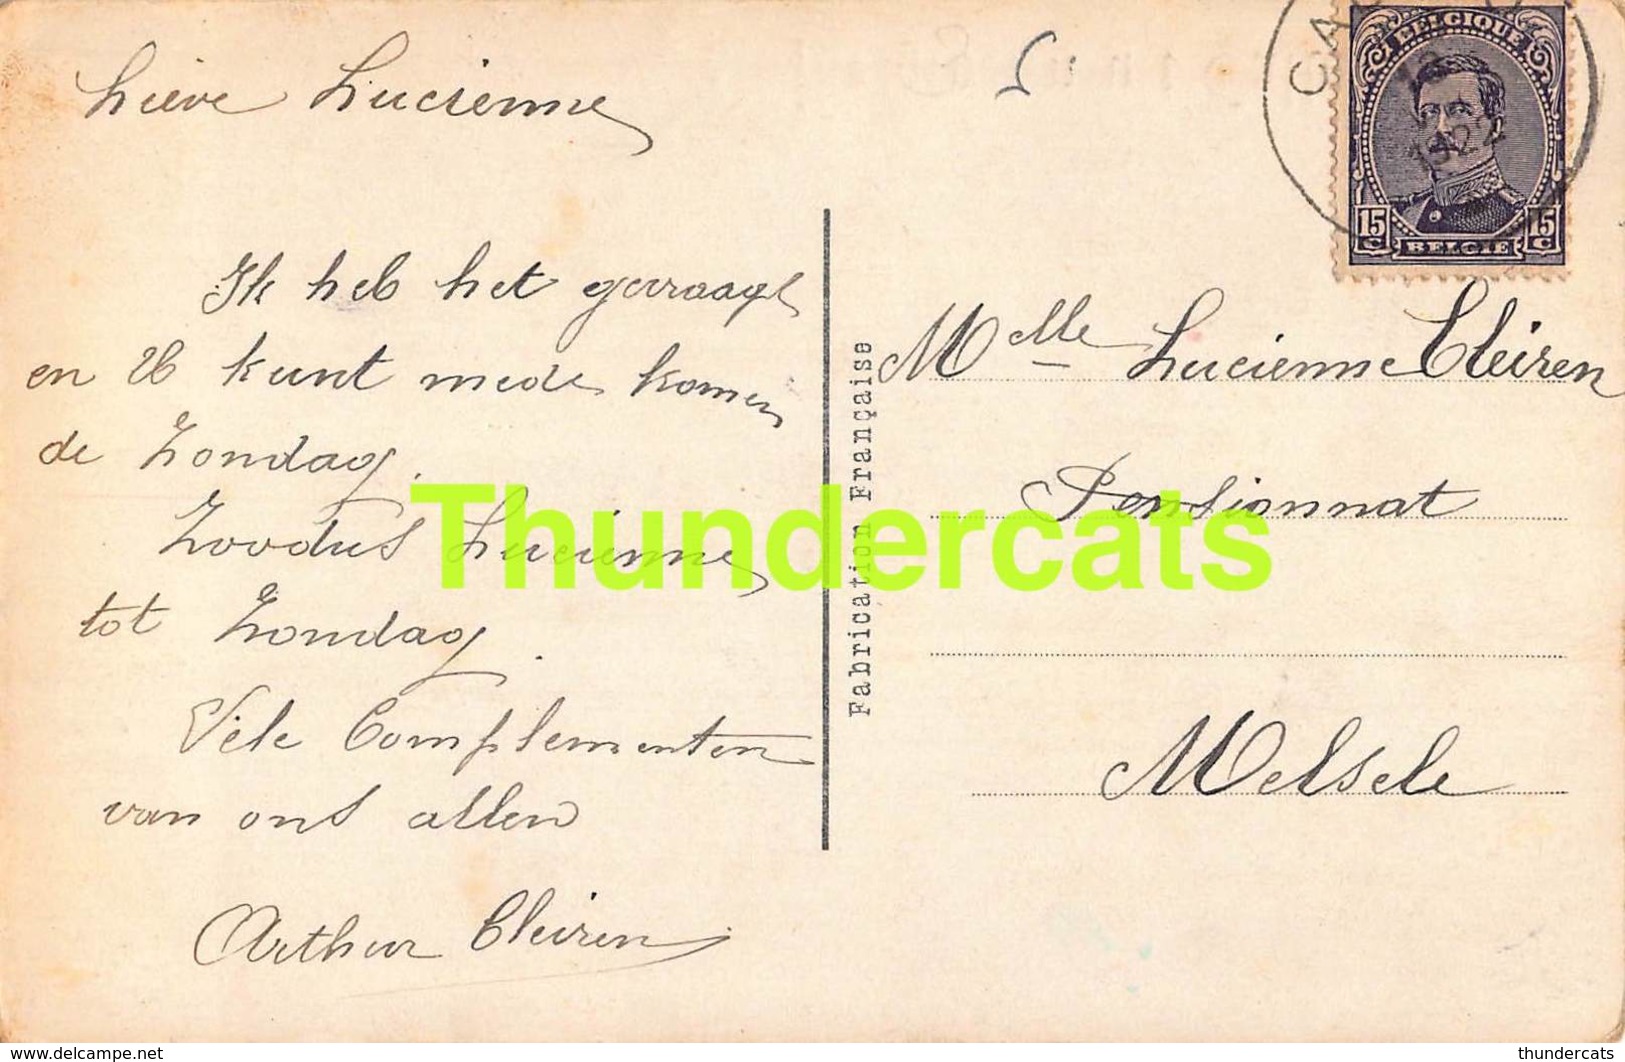 Lieve Lucienne
Ik heb het gevraagt
en U kunt mede komen
de Zondag.
Zoodus Lucienne
tot Zondag.
Vele Complementen
van ons allen
Arthur Cleiren
Fabrication Française
BELGIQUE
1922
15 C 15 C
BELGIE
Mlle Lucienne Cleiren
Pensionnat
Melsele
Thundercats
www.delcampe.net
thundercats